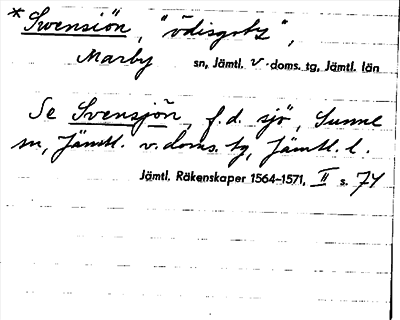 * Swensiön, "ödisgotz",
Marby sn, Jämtl. v. doms. tg, Jämtl. län
Se Svensjön, f.d. sjö, Sunne
sn, Jämtl. v. doms. tg, Jämtl. l.
Jämtl. Räkenskaper 1564-1571, II s. 74